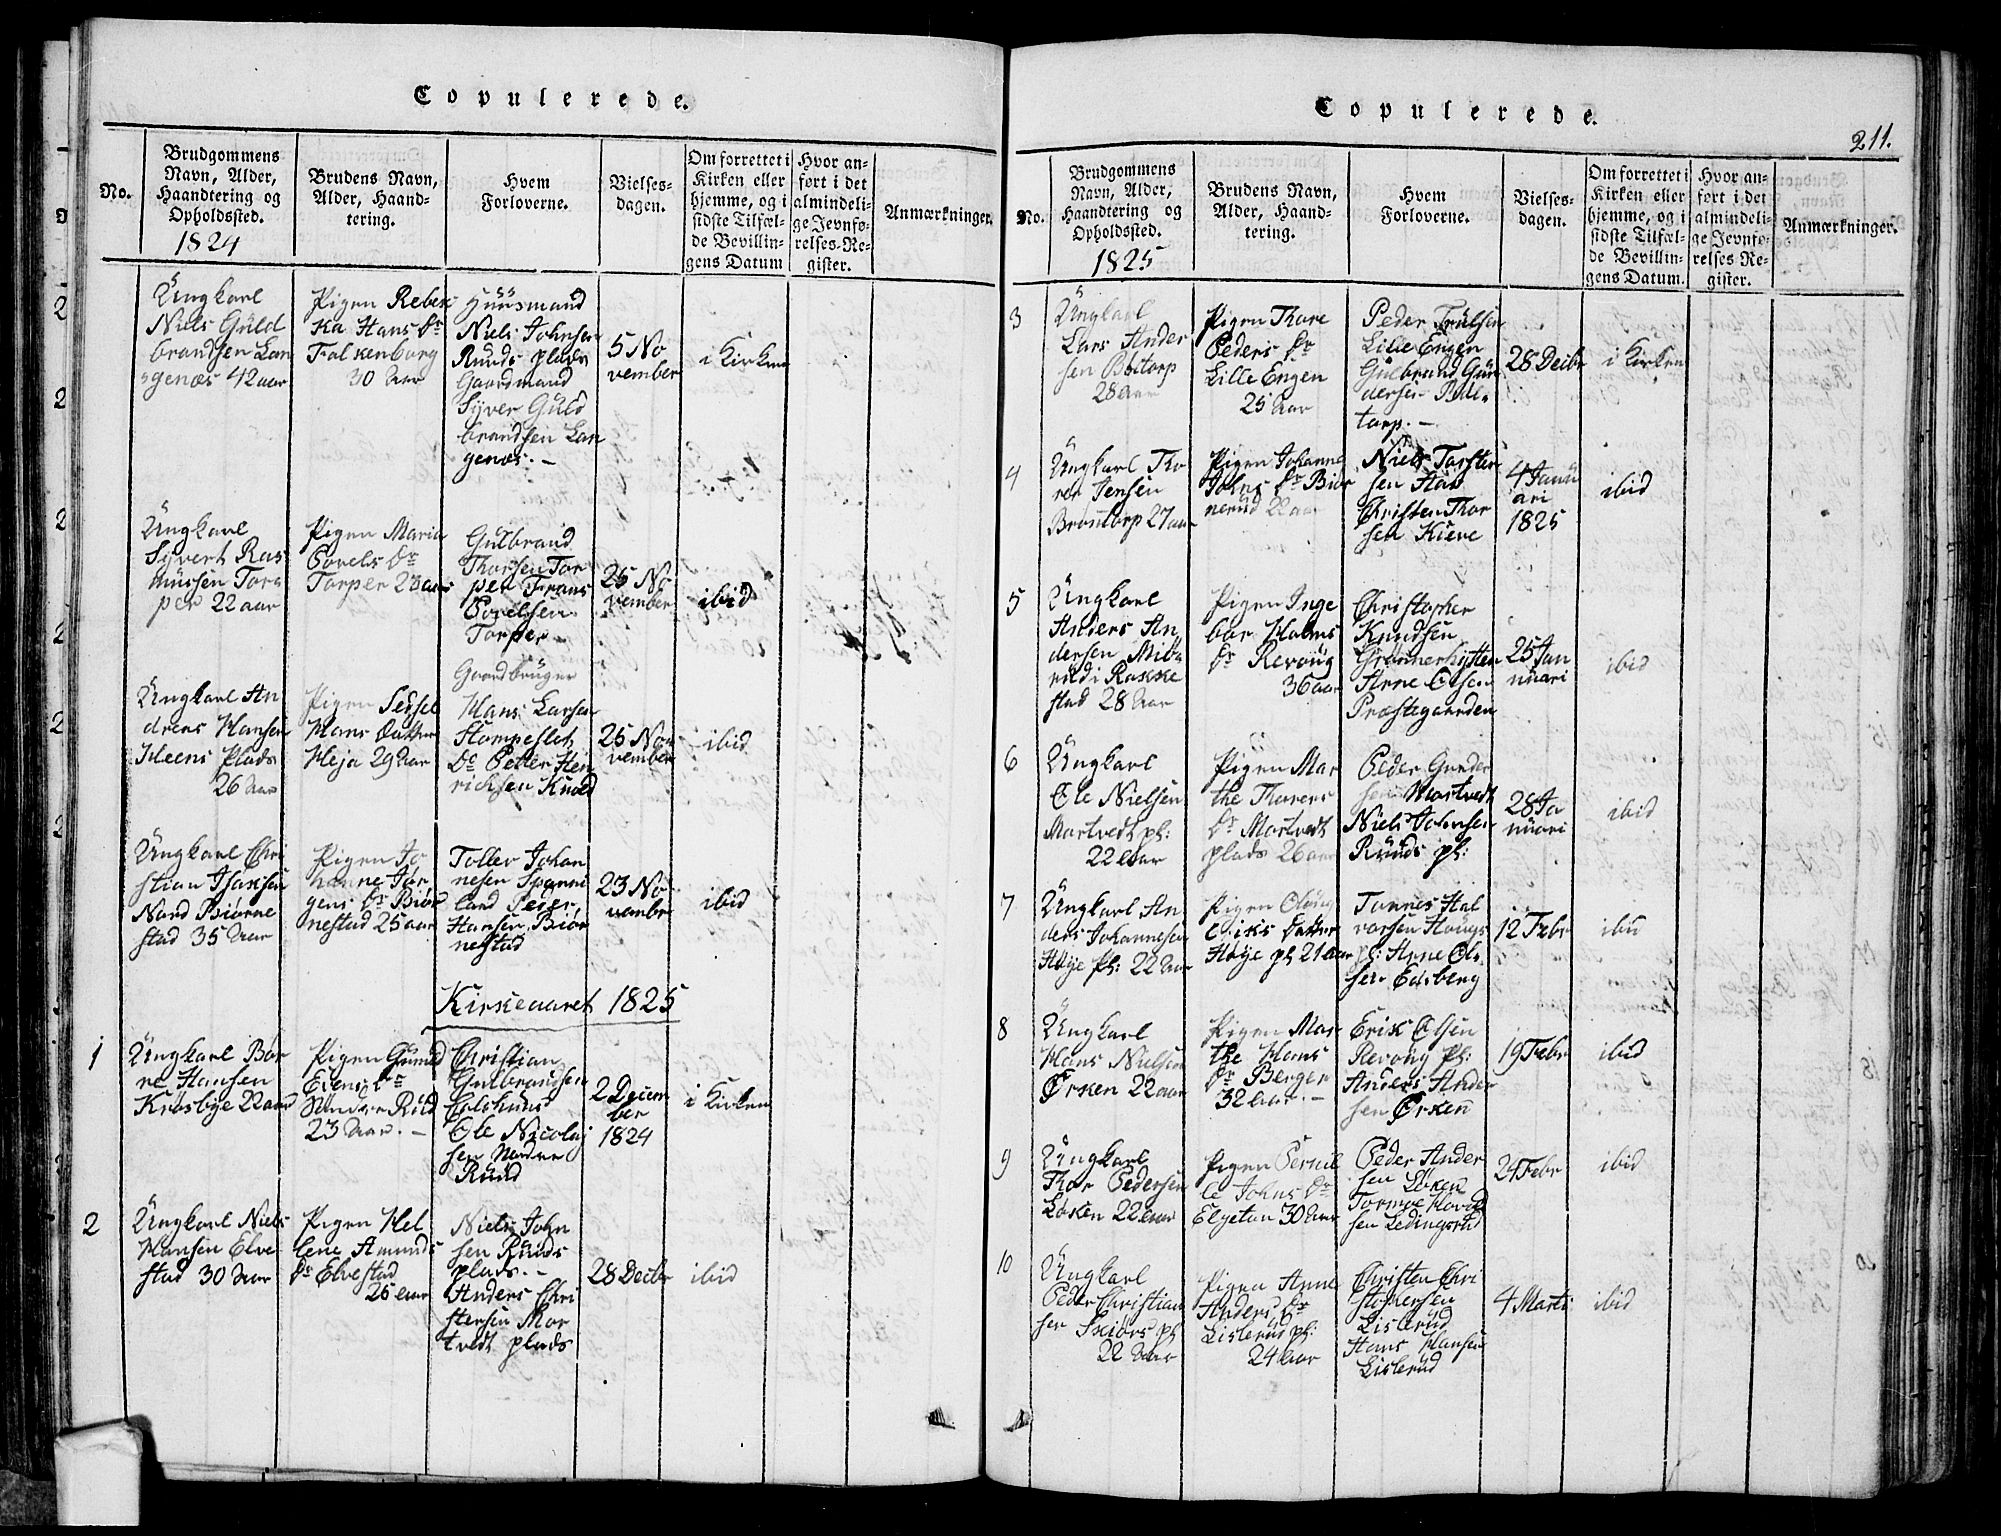 Copulerede.
No.
Brudgommens
Navn, Alder,
Haandtering og
Opholdssted.
1824
Brudens Navn,
Alder, Haand-
tering.
Hvem
Forloverne.
Vielses-
dagen.
Om forrettet i
Kirken eller
hjemme, og i
sidste Tilfæl-
de Bevillin-
gens Datum
Hvor an-
ført i det
almindeli-
ge Jevnfø-
relses-Re-
gister.
Anmærkninger.
Ungkarl
Niels Guld
brandsen Lan
genæs 42 aar
Pigen Rebek
ka Hans Dr
Falkenborg
30 Aar
Huusmand
Niels Johnsen
Ruuds plads
Gaardmand
Syver Guld
brandsen Lan
genæs. –
5 No
vember
i Kirken
Ungkarl
Syvert Ras
mussen Tor
per 22 aar
Pigen Maria
Povels Dr
Torper 23 aar
Gulbrand
Thorsen Tor
per Frans
Povelsen
Torper –
25 No
vember
ibid
Ungkarl An
dreas Hansen
Heens Plads
26 Aar
Pigen Sidsel
Hans Datter
Heja 29 Aar
Gaardbruger
Hans Larsen
Stompeslet
Do Petter Hen
richsen Knold
26 No
vember
ibid
Ungkarl Chri
stian Isaksen
Nord Biørne
stad 35 Aar
Pigen Jo
hanne Jør
gens Dr Biør
nestad 25 aar
Tollev Johan
nesen Sponni
land Peder
Hansen Biør
nestad
23 No
vember
ibid
Kirkeaaret 1825
1
Ungkarl Bør
re Hansen
Krosbye 22 aar
Pigen Gunild
Evens Dr
Nordre Rud
23 Aar. –
Christian
Gulbrandsen
Ole Nicolaj
sen Nordre
Ruud
2 Decem
ber
1824
i Kirken
2
Ungkarl Niels
Hansen Elve
stad 30 Aar
Pigen Hel
lene Amunds
Dr Elvestad
26 Aar
Niels John
sen Ruuds
plads. –
Anders Chri
stensen Mor
tvedt plads
28 Decbr
ibid
Copulerede.
211.
No.
Brudgommens
Navn, Alder,
Haandtering og
Opholdssted.
1825
Brudens Navn,
Alder, Haand-
tering.
Hvem
Forloverne.
Vielses-
dagen.
Om forrettet i
Kirken eller
hjemme, og i
sidste Tilfæl-
de Bevillin-
gens Datum.
Hvor an-
ført i det
almindeli-
ge Jevnfø-
relses Re-
gister.
Anmærkninger.
3
Ungkarl
Lars Ander
sen
28 Aar
Pigen Thore
Peders Dr
Lille Engen
25 Aar
Peder Trulsen
Lille Engen
Gulbrand Gun
dersen
torp. –
28 Decbr
i Kirken
4
Ungkarl Tho
rer Jensen
Brøntorp 27 aar
Pigen Johanne
Johns Dr Biør
nerud 22 aar
Niels Torsten
sen Haie
Christen Thor
sen Kieve
4 Janu
ari
1825
ibid
5
Ungkarl
Anders An
dersen Miø
rud i Rakke
stad 28 Aar
Pigen Inge
bor Holms
Dr Revoug
36 aar
Christopher
Knudsen
Grønnerhytten
Arne Olsen
Præstegaarden
25 Jan
nuari
ibid
6
Ungkarl
Ole Nielsen
Mortvedt pl:
22 Aar
Pigen Mar
the Thorers
Dr Mortvedt
plads 26 aar
Peder Gunder
sen Mortvedt
Niels Johnsen
Ruuds pl:
28 Ja
nuari
ibid
7
Ungkarl An
ders Johannesen
Høye pl: 22 Aar
Pigen Oloug
Eriks Datter
Høye pl 21 aar
Tønnes Hal
vorsen Hougs
pl: Arne Ol
sen Eidsberg
12 Febr
ibid
8
Ungkarl
Hans Nielsen
Ørsken 22 aar
Pigen Mar
the Hans
Dr Berger
32 Aar. –
Erik Olsen
Revoug pl:
Anders Ander
sen Ørsken
19 Febr
ibid
9
Ungkarl
Thor Pedersen
Løken 22 aar
Pigen Pernil
le Johns Dr
Elgetun 30 Aar
Peder Ander
sen Løken
Tormoe Hovel
sen Ledingsrud
24 Febr
ibid
10
Ungkarl
Peder Christian
sen Skiørs pl
22 Aar
Pigen Anne
Anders Dr
Lislerud pl:
24 Aar
Christen Chri
stophersen
Lislerud
Hans Hansen
Lislerud
4 Marti
ibid